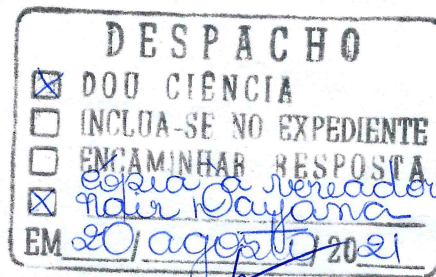 DESPACHO
☒ DOU CIÊNCIA
☐ INCLUA-SE NO EXPEDIENTE
☐ ENCAMINHAR RESPOSTA
cópia a vereador
☒ Nair Dayana
EM 20/agosto/2021